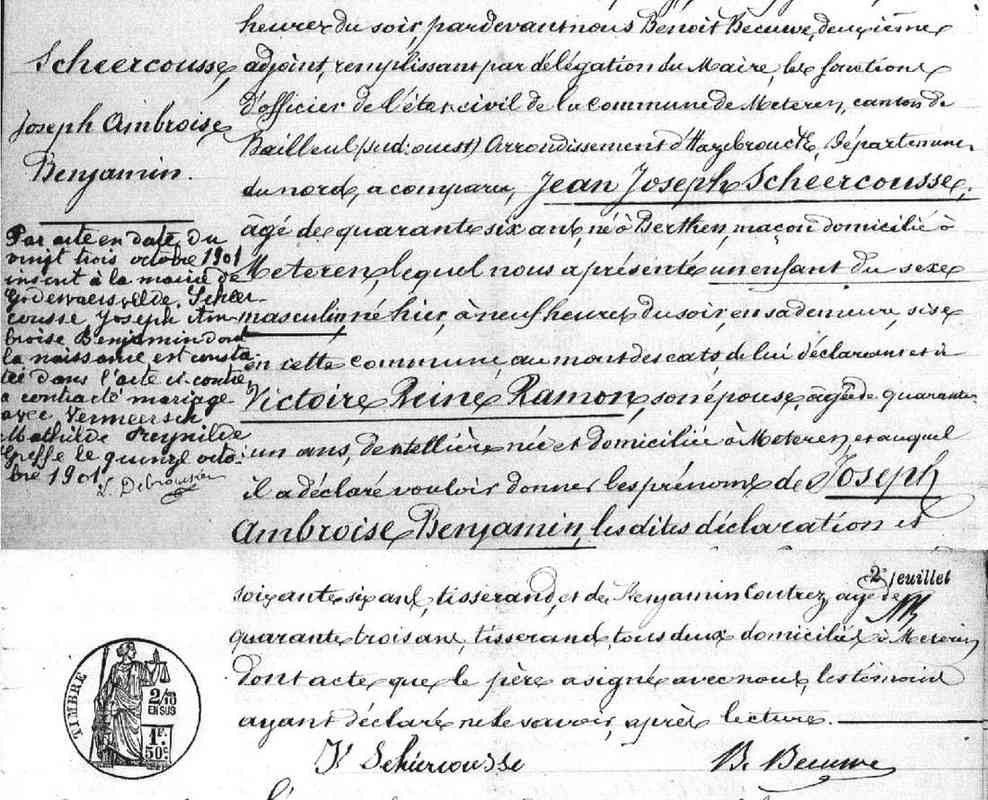 Scheercousse
Joseph Ambroise
Benjamin.
Par acte en date du
vingt trois octobre 1901
inscrit à la mairie de
Godewaersvelde, Scheer-
cousse Joseph Am-
broise Benjamin dont
la naissance est consta-
tée dans l'acte ci-contre,
a contracté mariage
avec Vermeersch
Mathilde Reynilde
Greffe le quinze octo-
bre 1901.
heures du soir, pardevant nous Benoit Becuwe, deuxième
adjoint, remplissant par délégation du Maire, les fonctions
d'officier de l'état-civil de la Commune de Meteren, canton de
Bailleul (sud-ouest) Arrondissement d'Hazebrouck, Département
du nord, a comparu, Jean Joseph Scheercousse,
âgé de quarante six ans, né à Berthen, maçon domicilié à
Meteren, lequel nous a présenté un enfant du sexe
masculin né hier, à neuf heures du soir, en sa demeure, sise
en cette commune, au mont des cats, de lui déclarant et de
Victoire Reine Ramon, son épouse, âgée de quarante
un ans, dentellière née et domiciliée à Meteren, et auquel
il a déclaré vouloir donner les prénoms de Joseph
Ambroise Benjamin, lesdites déclaration et
2e feuillet
soixante six ans, tisserand, et de Benjamin Coutrez, âgé de
quarante trois ans, tisserand, tous deux domiciliés à Meteren
Dont acte que le père a signé avec nous, les témoins
ayant déclaré ne le savoir, après lecture.
TIMBRE
2/10
EN SUS
1F.
50c.
Jh Schiercousse
B. Becuwe